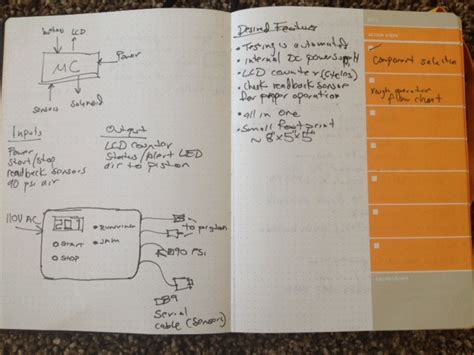 buttons LCD
Power
MC
Sensors Solenoid
Inputs
Power
start/stop
readback sensors
90 psi air
Output
LCD counter
Status/Alert LED
air to piston
110V AC
207
RUN
START
JAM
STOP
to piston
90 PSI
DB9
Serial
cable (sensors)
Desired Features
• Testing is automated
• internal DC power supply
• LCD counter (cycles)
• Check readback sensor
for proper operation
• All in one
• Small footprint
~ 8"x5"x5"
ACTION STEPS
Component selection
Rough operation
flow chart